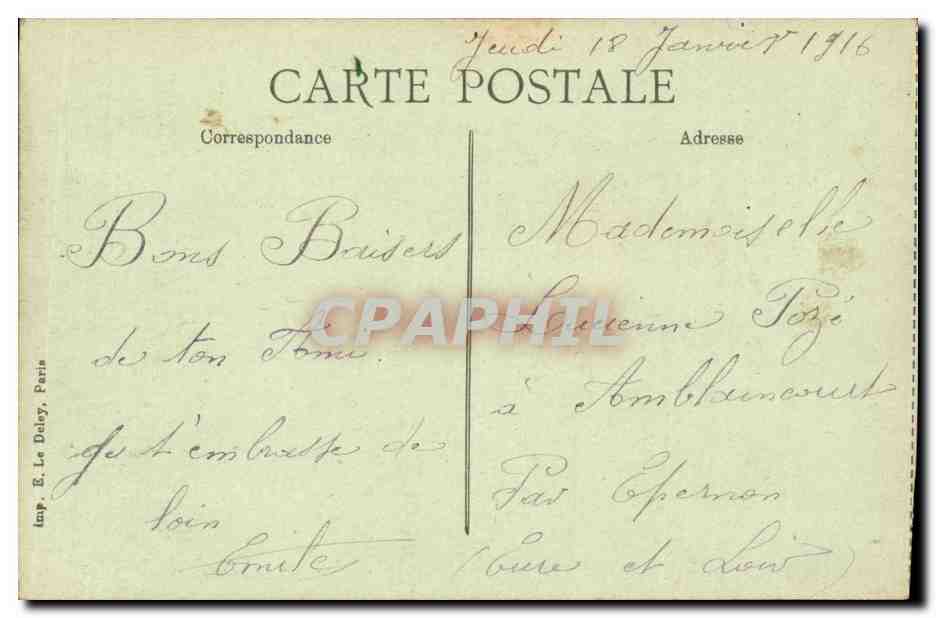 Jeudi 18 Janvier 1916
CARTE POSTALE
Correspondance
Adresse
Bons Baisers
de ton Ami.
Je t'embrasse de
loin
Emile
Mademoiselle
Lucienne Pozé
à Amblaincourt
Par Epernon
(Eure et Loir)
Imp. E. Le Deley, Paris
CPAPHIL